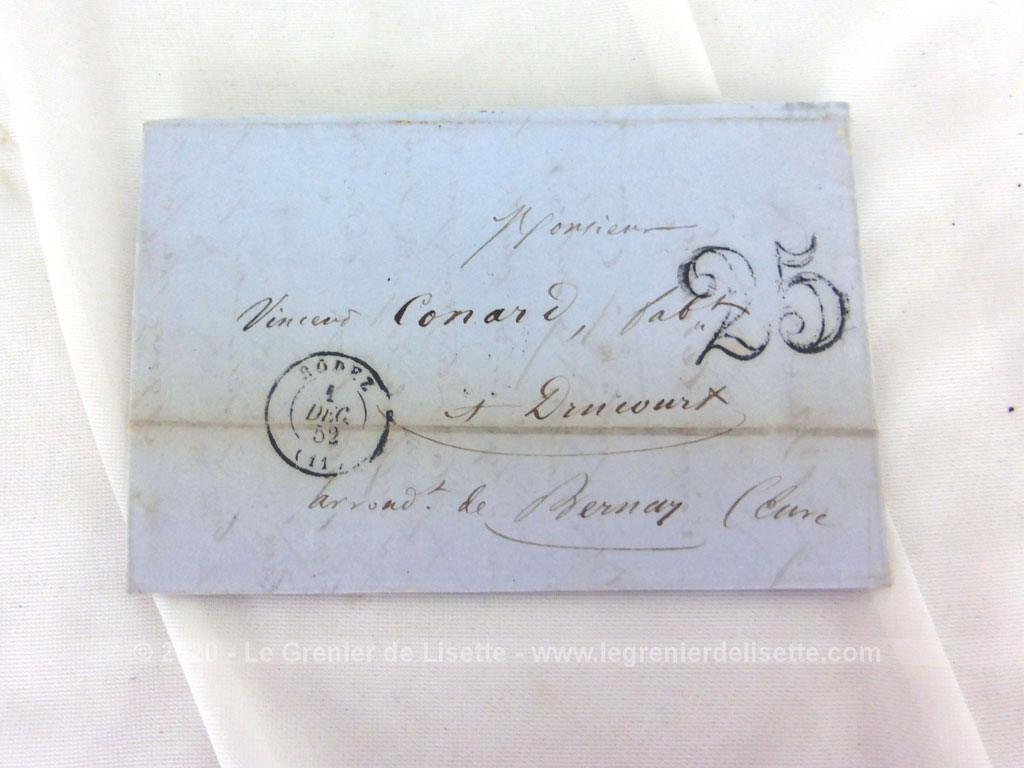 Monsieur
Vincend Conard, fabt
25
RODEZ
1
DEC.
52
(11)
à Drucourt
arrondt. de Bernay (Eure
© 2020 - Le Grenier de Lisette - www.legrenierdelisette.com